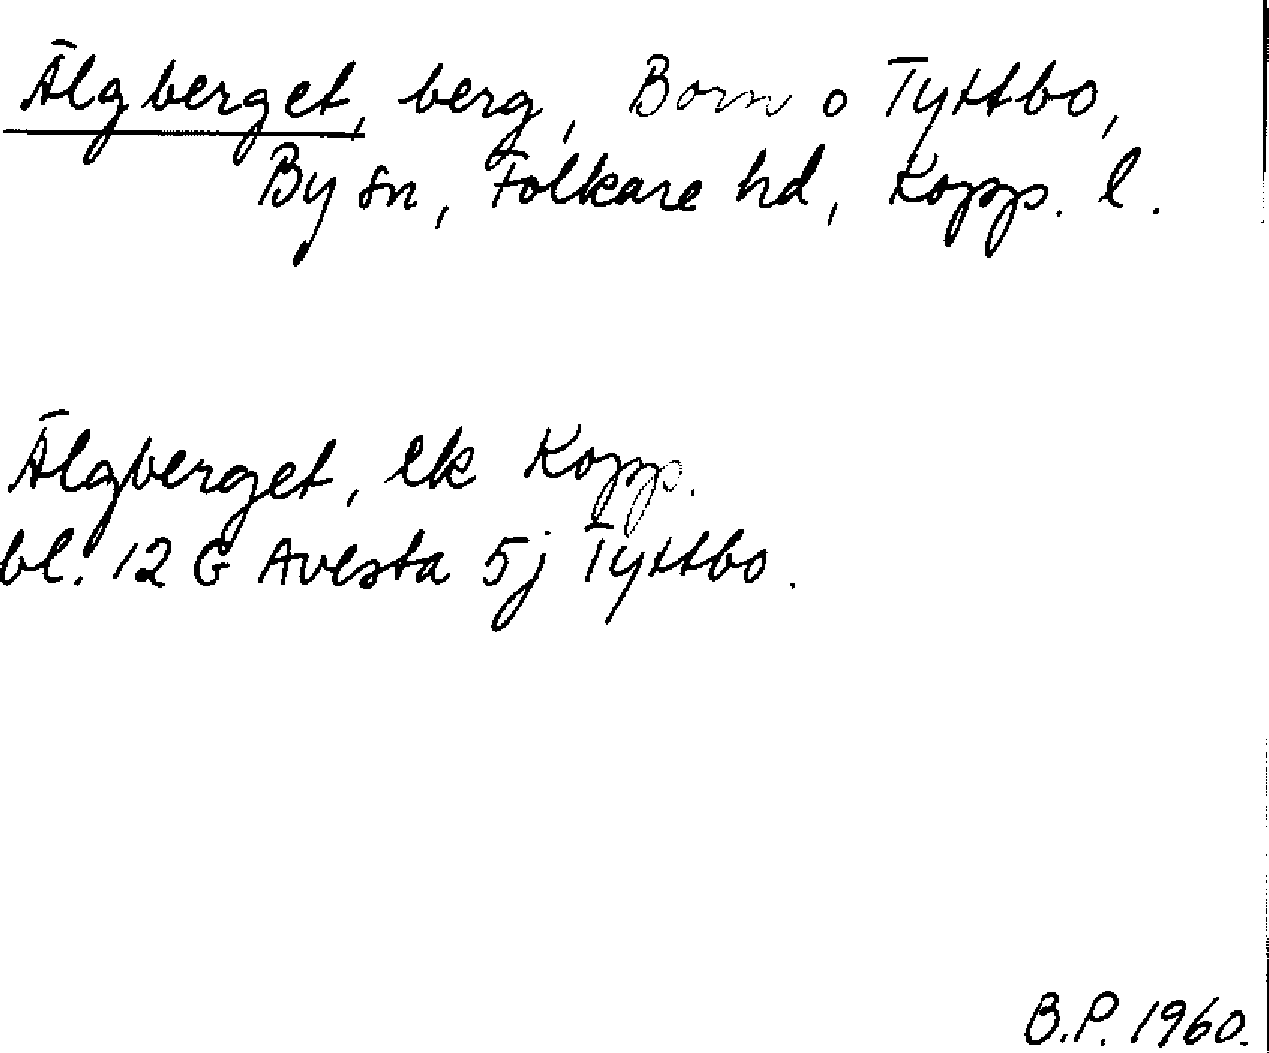 Älgberget, berg, Born o Tyttbo,
By sn, Folkare hd, Kopp. l.
Älgberget, ek Kopp.
bl. 12 G Avesta 5j Tyttbo.
B.P. 1960.